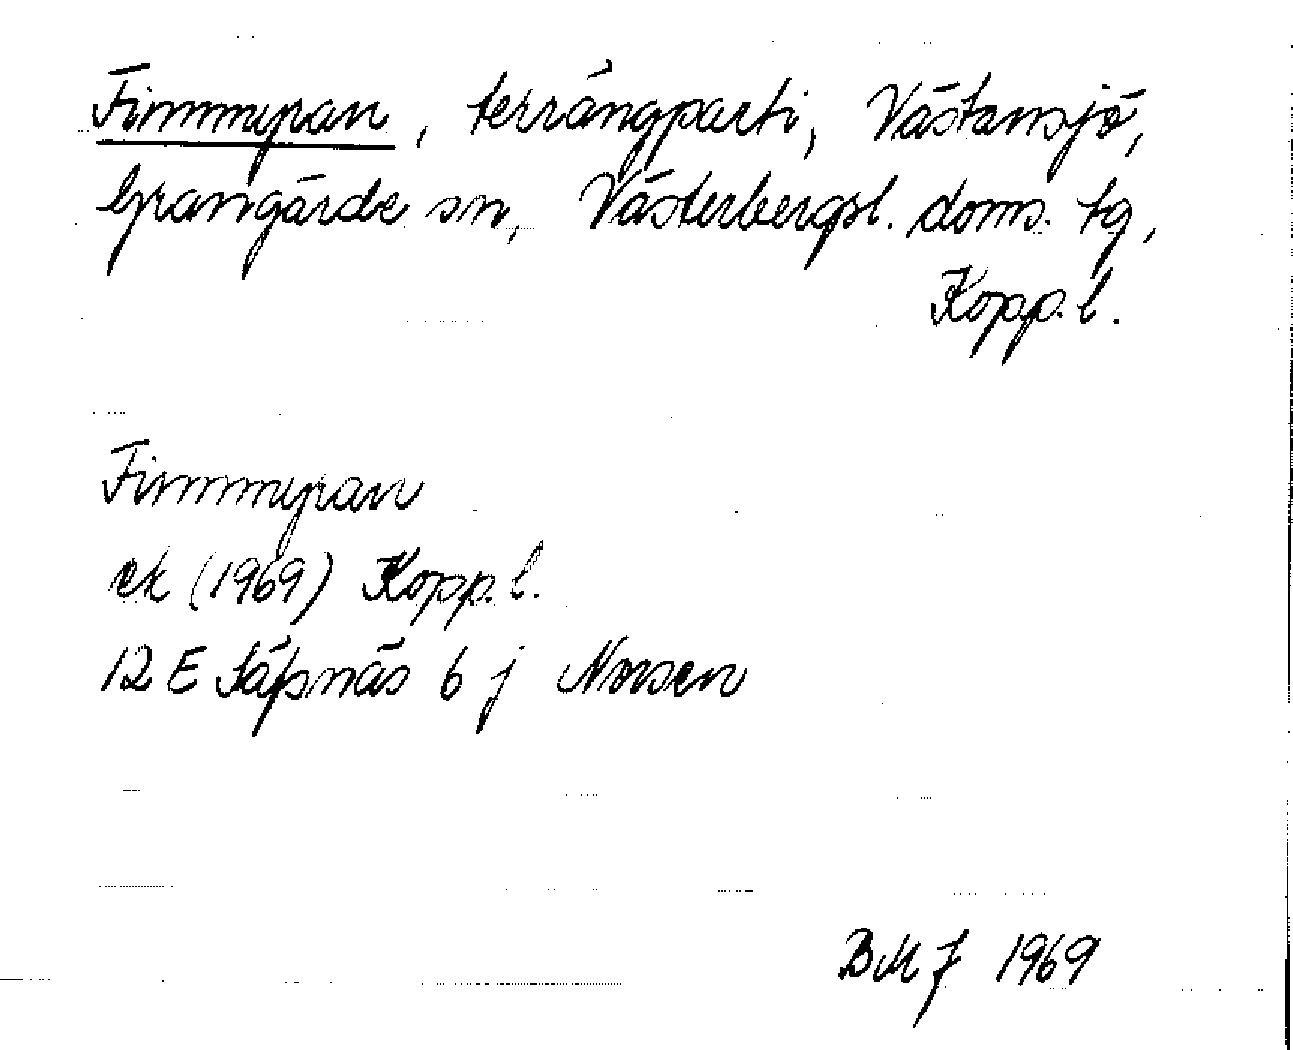 Finnmyran, terrängparti, Västansjö,
Grangärde sn, Västerbergsl. doms. tg,
Kopp. l.
Finnmyran
ek (1969) Kopp. l.
12 E Säfsnäs 6 j Norsen
BMJ 1969